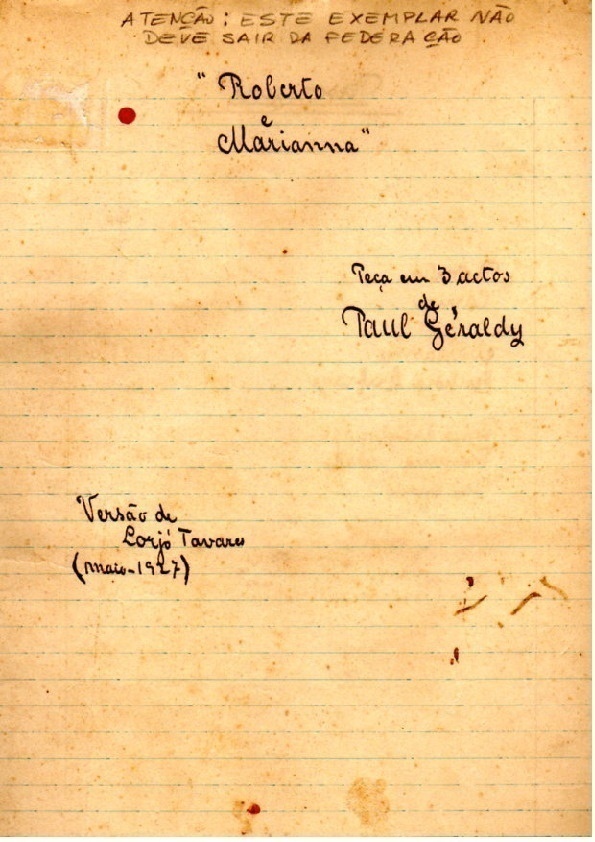 ATENÇÃO: ESTE EXEMPLAR NÃO
DEVE SAIR DA FEDERAÇÃO
"Roberto
e
Marianna"
Peça em 3 actos
de
Paul Géraldy
Versão de
Lorjó Tavares
(maio-1927)